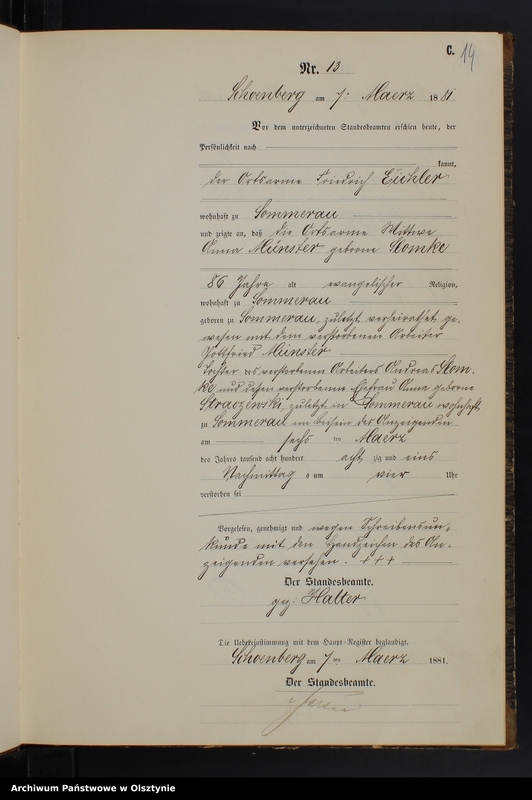 C.
14
Nr. 13.
Schoenberg am 7. Maerz 1881.
Vor dem unterzeichneten Standesbeamten erschien heute, der
Persönlichkeit nach
kannt,
der Ortsarme Friedrich Eichler
wohnhaft zu Sommerau
und zeigte an, daß die Ortsarme Wittwe
Anna Münster geborne Slomke
86 Jahre alt evangelischer Religion,
wohnhaft zu Sommerau
geboren zu Sommerau, zuletzt verheirathet ge-
wesen mit dem verstorbenen Arbeiter
Gottfried Münster
Tochter des verstorbenen Arbeiters Andreas Slom-
ke und dessen verstorbenen Ehefrau Anna geborne
zuletzt in Sommerau wohnhaft,
zu Sommerau im Beisein des Anzeigenden
am sechs ten Maerz
des Jahres tausend acht hundert acht zig und eins
Nachmittag s um vier Uhr
verstorben sei
Vorgelesen, genehmigt und wegen Schreibensun-
kunde mit den Handzeichen des An-
zeigenden versehen. +++
Der Standesbeamte.
gez: Halter
Die Uebereinstimmung mit dem Haupt-Register beglaubigt.
Schoenberg am 7 ten Maerz 1881.
Der Standesbeamte.
Archiwum Państwowe w Olsztynie